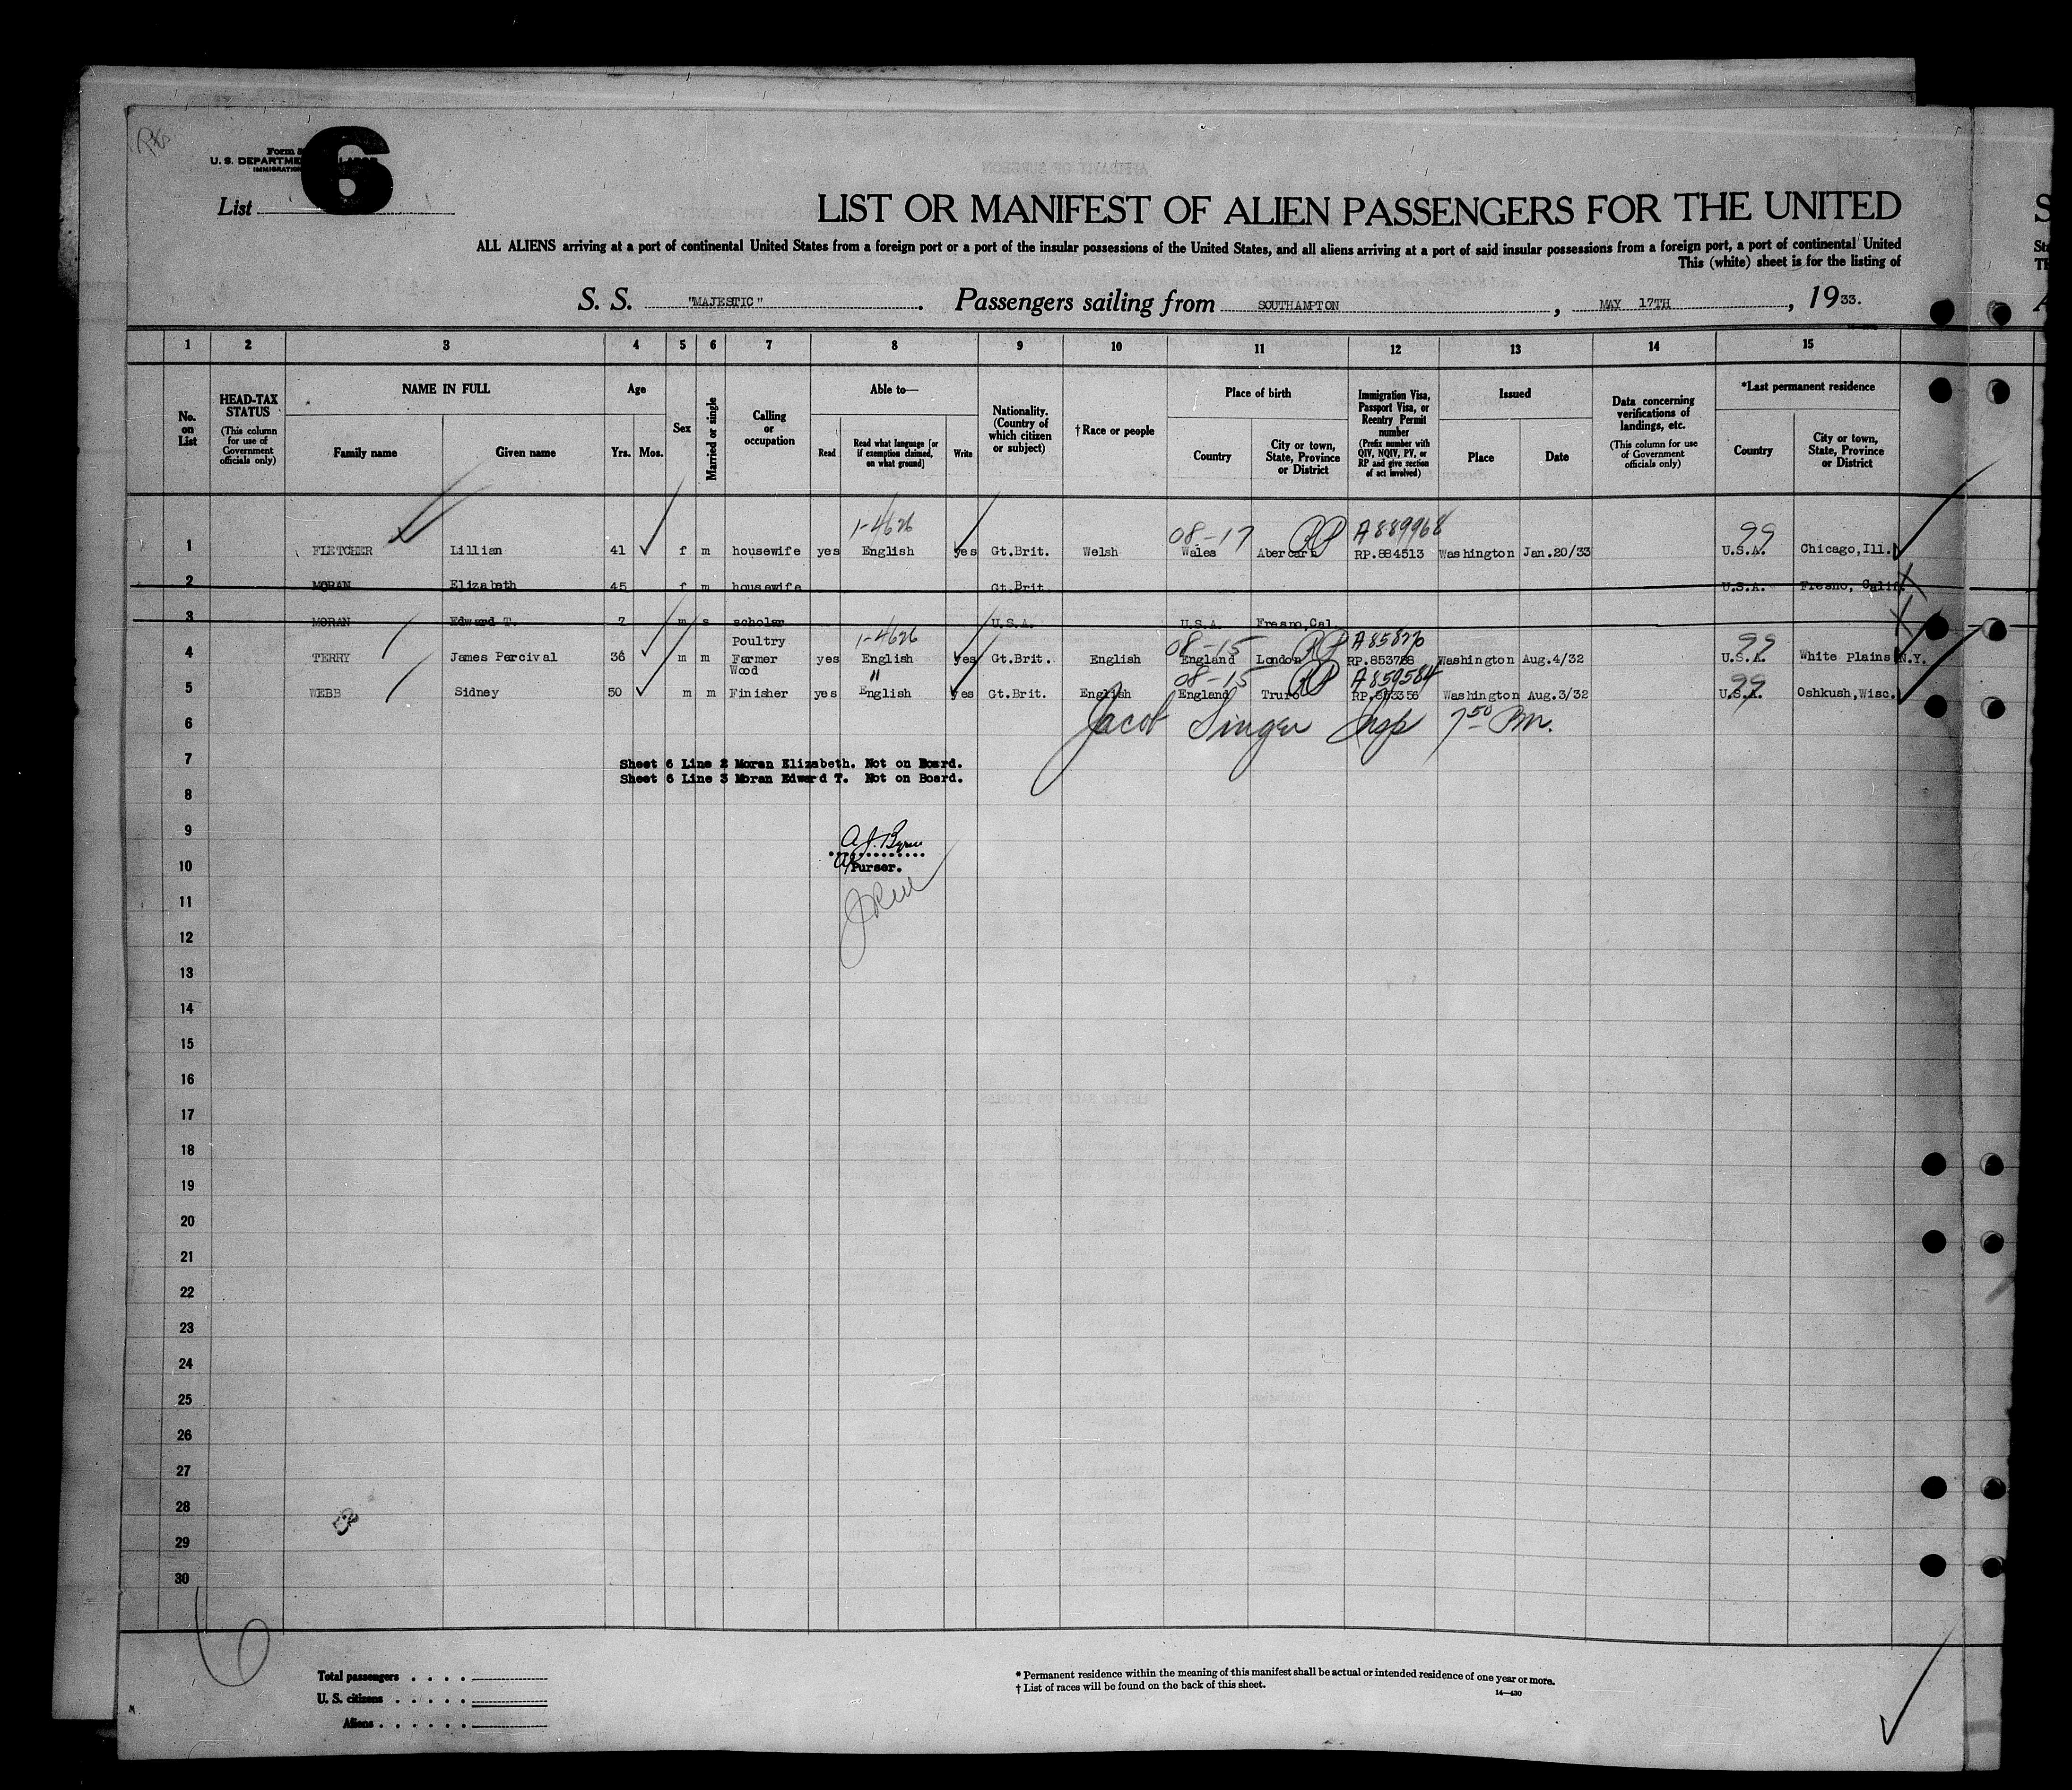 6
Form
U. S. DEPARTME
IMMIGRATION
List
LIST OR MANIFEST OF ALIEN PASSENGERS FOR THE UNITED
ALL ALIENS arriving at a port of continental United States from a foreign port or a port of the insular possessions of the United States, and all aliens arriving at a port of said insular possessions from a foreign port, a port of continental United
This (white) sheet is for the listing of
S. S. "MAJESTIC". Passengers sailing from SOUTHAMPTON, MAY 17TH, 1933.
1 2 3 4 5 6 7 8 9 10 11 12 13 14 15
No. on List
HEAD-TAX STATUS (This column for use of Government officials only)
NAME IN FULL
Family name Given name
Age
Yrs. Mos.
Sex
Married or single
Calling or occupation
Able to—
Read Read what language [or if exemption claimed, on what ground] Write
Nationality. (Country of which citizen or subject)
†Race or people
Place of birth
Country City or town, State, Province or District
Immigration Visa, Passport Visa, or Reentry Permit number (Prefix number with QIV, NQIV, PV, or RP and give section of act involved)
Issued
Place Date
Data concerning verifications of landings, etc. (This column for use of Government officials only)
*Last permanent residence
Country City or town, State, Province or District
1-4626 08-17 A889968 99
1 FLETCHER Lillian 41 f m housewife yes English yes Gt.Brit. Welsh Wales Abercarn RP.884513 Washington Jan.20/33 U.S.A. Chicago,Ill.
2 MORAN Elizabeth 45 f m housewife Gt.Brit. U.S.A. Fresno, Calif.
3 MORAN Edward T. 7 m s scholar U.S.A. U.S.A. Fresno,Cal
Poultry 1-4626 08-15 99
4 TERRY James Percival 36 m m Farmer yes English yes Gt.Brit. English England London RP.853758 Washington Aug.4/32 U.S.A. White Plains N.Y.
Wood " 08-15 A859584 99
5 WEBB Sidney 50 m m Finisher yes English yes Gt.Brit. English England Truro RP.853356 Washington Aug.3/32 U.S.A. Oshkush,Wisc.
6 Jacob Singer Insp 7 50 Pm.
7
Sheet 6 Line 2 Moran Elizabeth. Not on Board.
Sheet 6 Line 3 Moran Edward T. Not on Board.
8
9
A.J. Byrne
10
Purser.
11
12
13
14
15
16
17
18
19
20
21
22
23
24
25
26
27
28
29
30
6
Total passengers
U. S. citizens
Aliens
* Permanent residence within the meaning of this manifest shall be actual or intended residence of one year or more.
† List of races will be found on the back of this sheet.
14—430